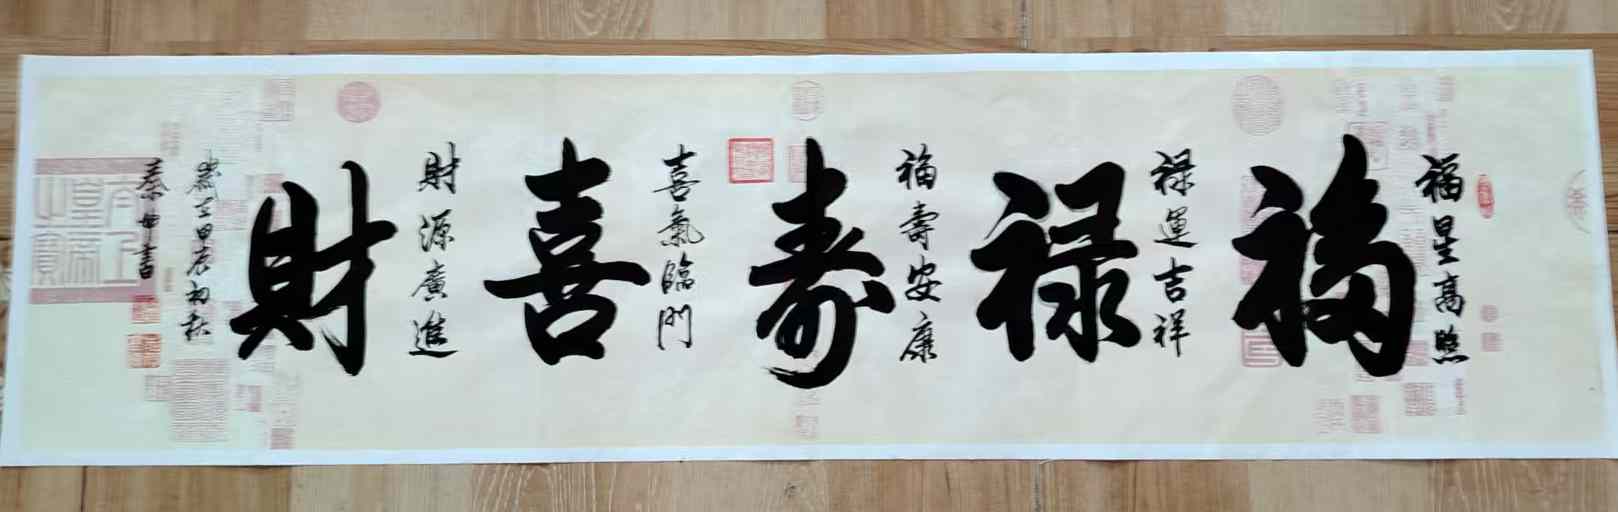 福星髙照
福
禄運吉祥
禄
福壽安康
寿
喜氣臨門
喜
財源廣進
財
歲在甲辰初秋
秦坤書